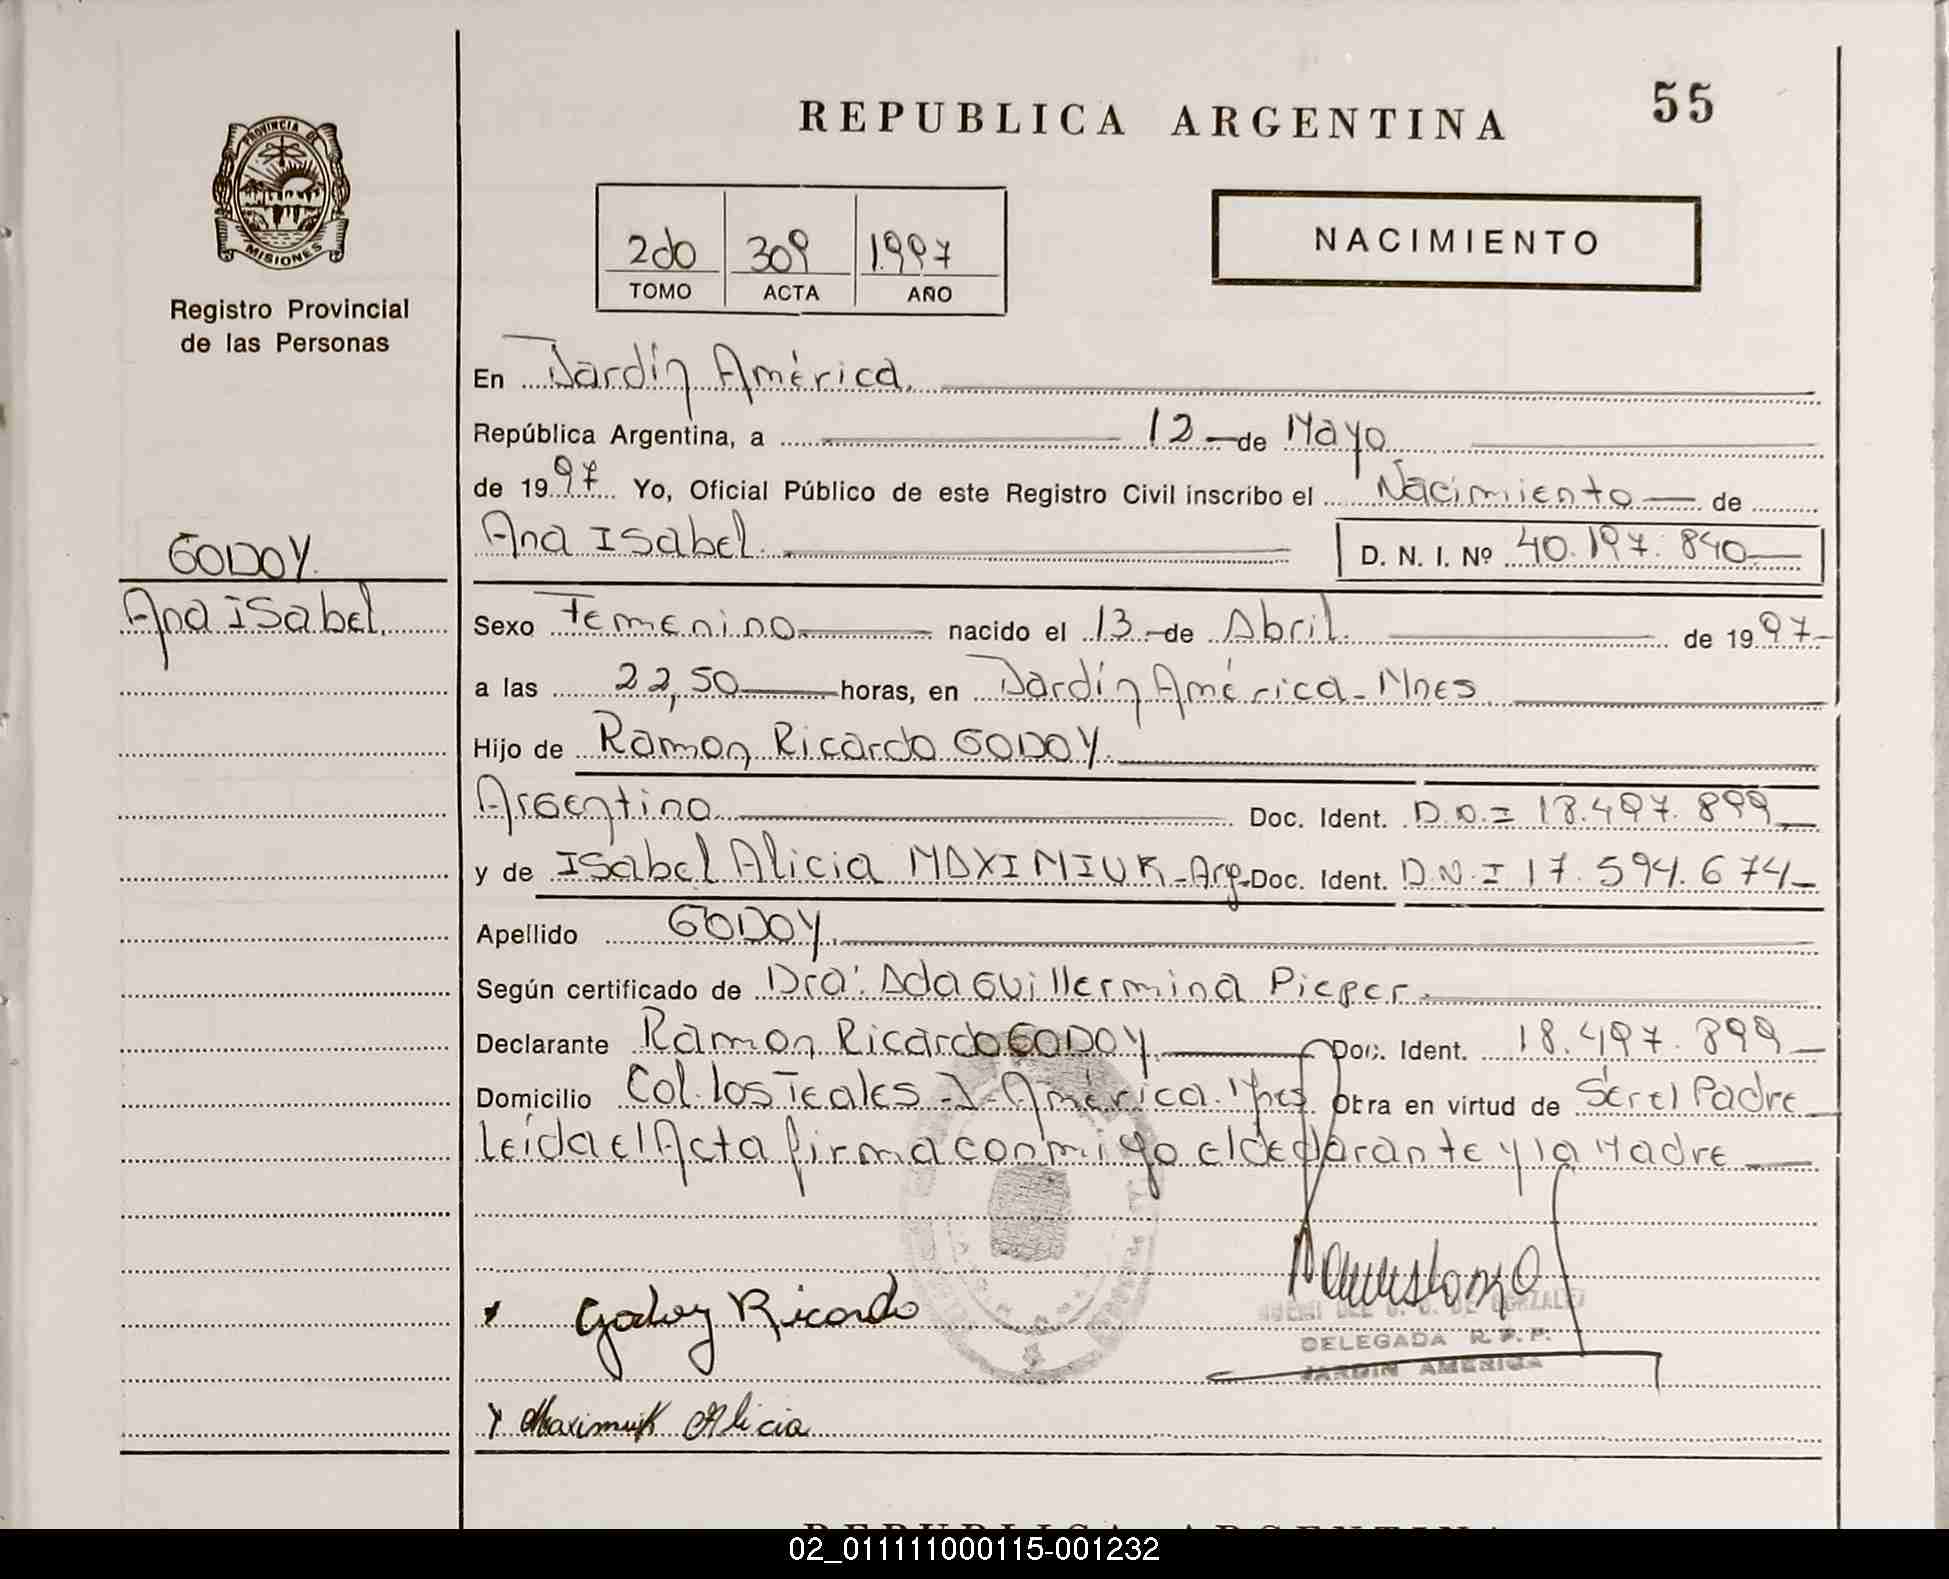 REPUBLICA ARGENTINA
55
PROVINCIA DE
MISIONES
Registro Provincial
de las Personas
2do 309 1.997
TOMO ACTA AÑO
NACIMIENTO
En Jardín América.
República Argentina, a 12 de Mayo
de 1997 Yo, Oficial Público de este Registro Civil inscribo el Nacimiento de
GODOY.
Ana Isabel.
Ana Isabel. D. N. I. Nº 40.197.840
Sexo Femenino nacido el 13 de Abril. de 1997
a las 22,50 horas, en Jardín América - Mnes
Hijo de Ramon Ricardo GODOY.
Argentino Doc. Ident. D.N.I 18.497.899
y de Isabel Alicia MAXIMIUK - Arg. Doc. Ident. D.N.I 17.594.674
Apellido GODOY.
Según certificado de Dra: Ada Guillermina Pieper.
Declarante Ramon Ricardo GODOY. Doc. Ident. 18.497.899
Domicilio Col. los Teales - J - América. Mnes Obra en virtud de Ser el Padre
Leída el Acta firma conmigo el declarante y la Madre
Godoy Ricardo
DE GONZALEZ
DELEGADA R.P.P.
JARDIN AMERICA
Maximiuk Alicia
REPUBLICA ARGENTINA
02_011111000115-001232